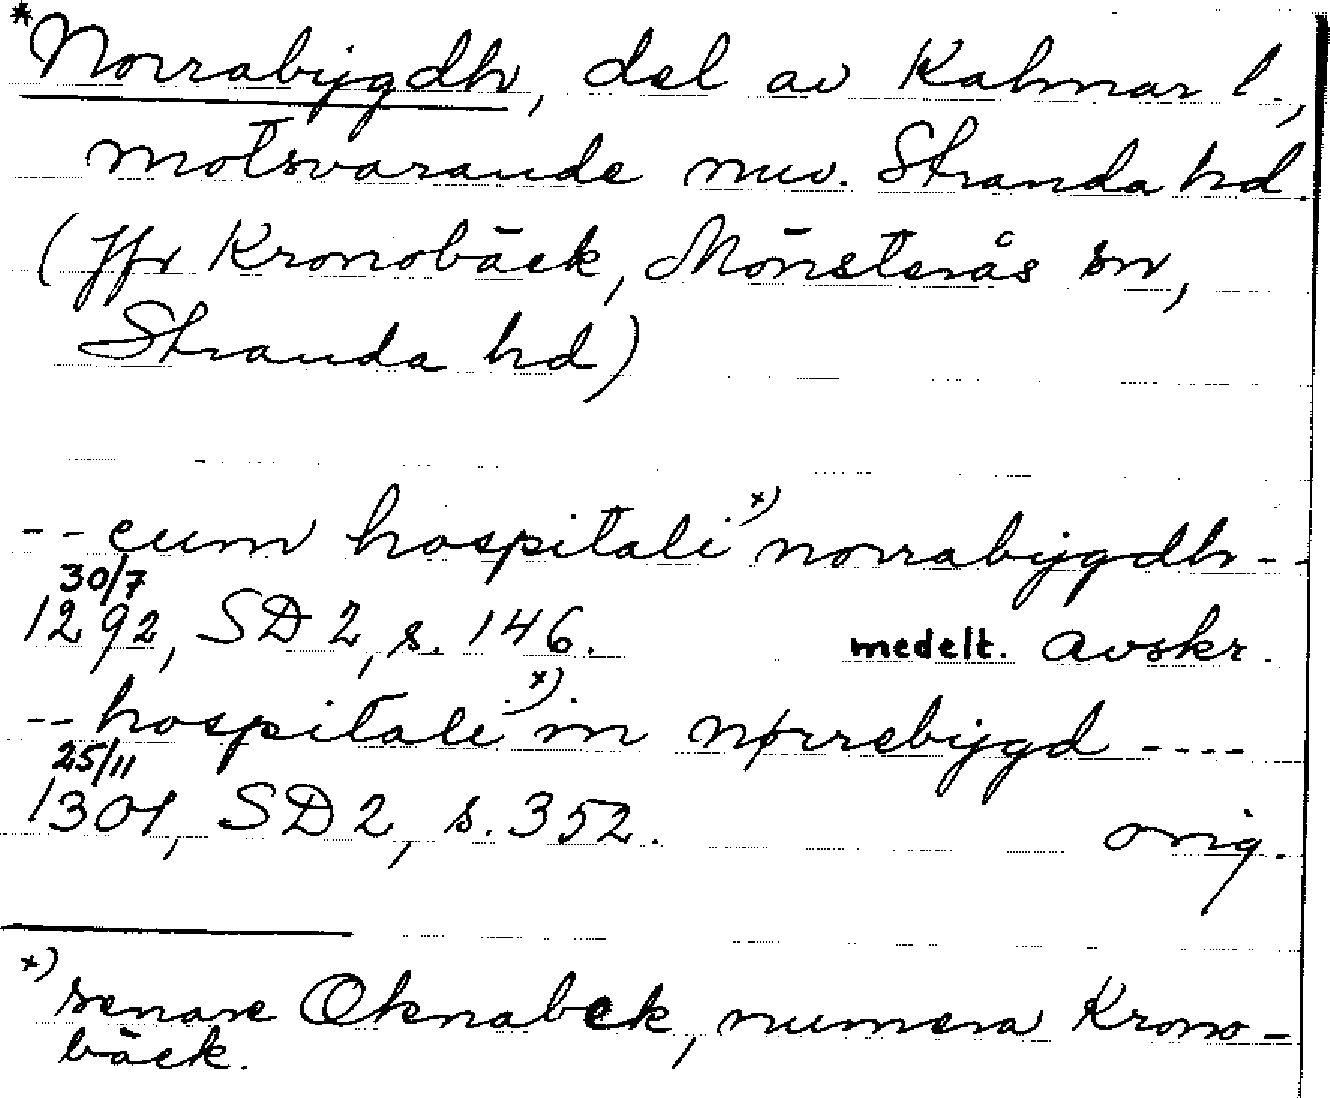 *Norrabygdh, del av Kalmar l.,
motsvarande nuv. Stranda hd.
(Jfr Kronobäck, Mönsterås sn,
Stranda hd)
-- cum hospitali x) norrabygdh --
30/7
1292, SD 2, s. 146. medelt. avskr.
-- hospitali x) in nørrebygd ----
25/11
1301, SD 2, s. 352. orig.
x) senare Oknabek, numera Krono-
bäck.